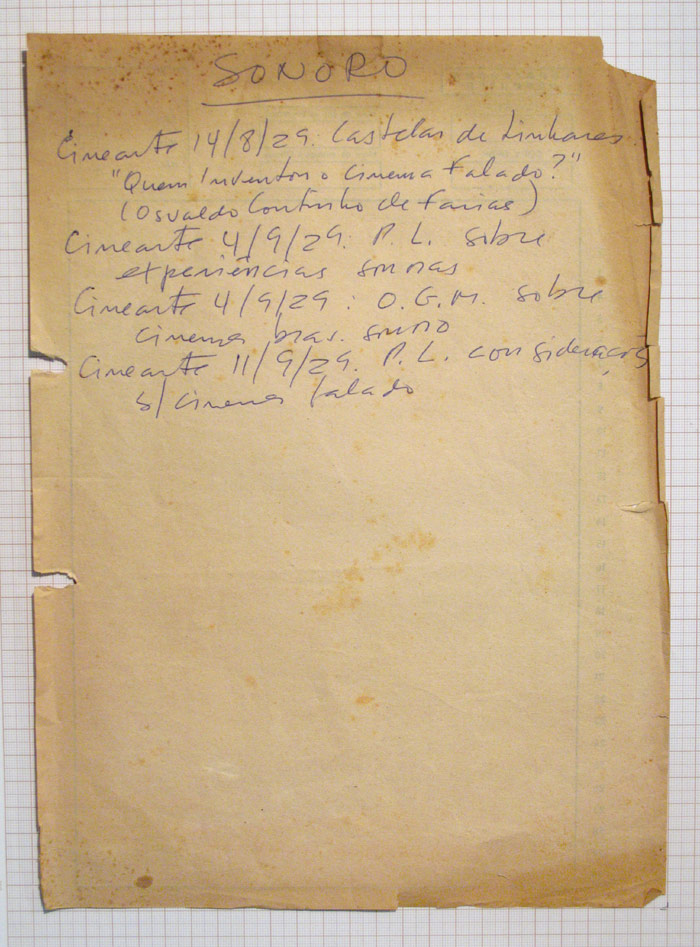 SONORO
Cinearte 14/8/29. Castelar de Linhares
"Quem Inventou o Cinema Falado?"
(Osvaldo Coutinho de Farias)
Cinearte 4/9/29. P. L. sobre
experiências sonoras
Cinearte 4/9/29: O. G. M. sobre
cinema bras. sonoro
Cinearte 11/9/29. P. L. considerações
s/ cinema falado